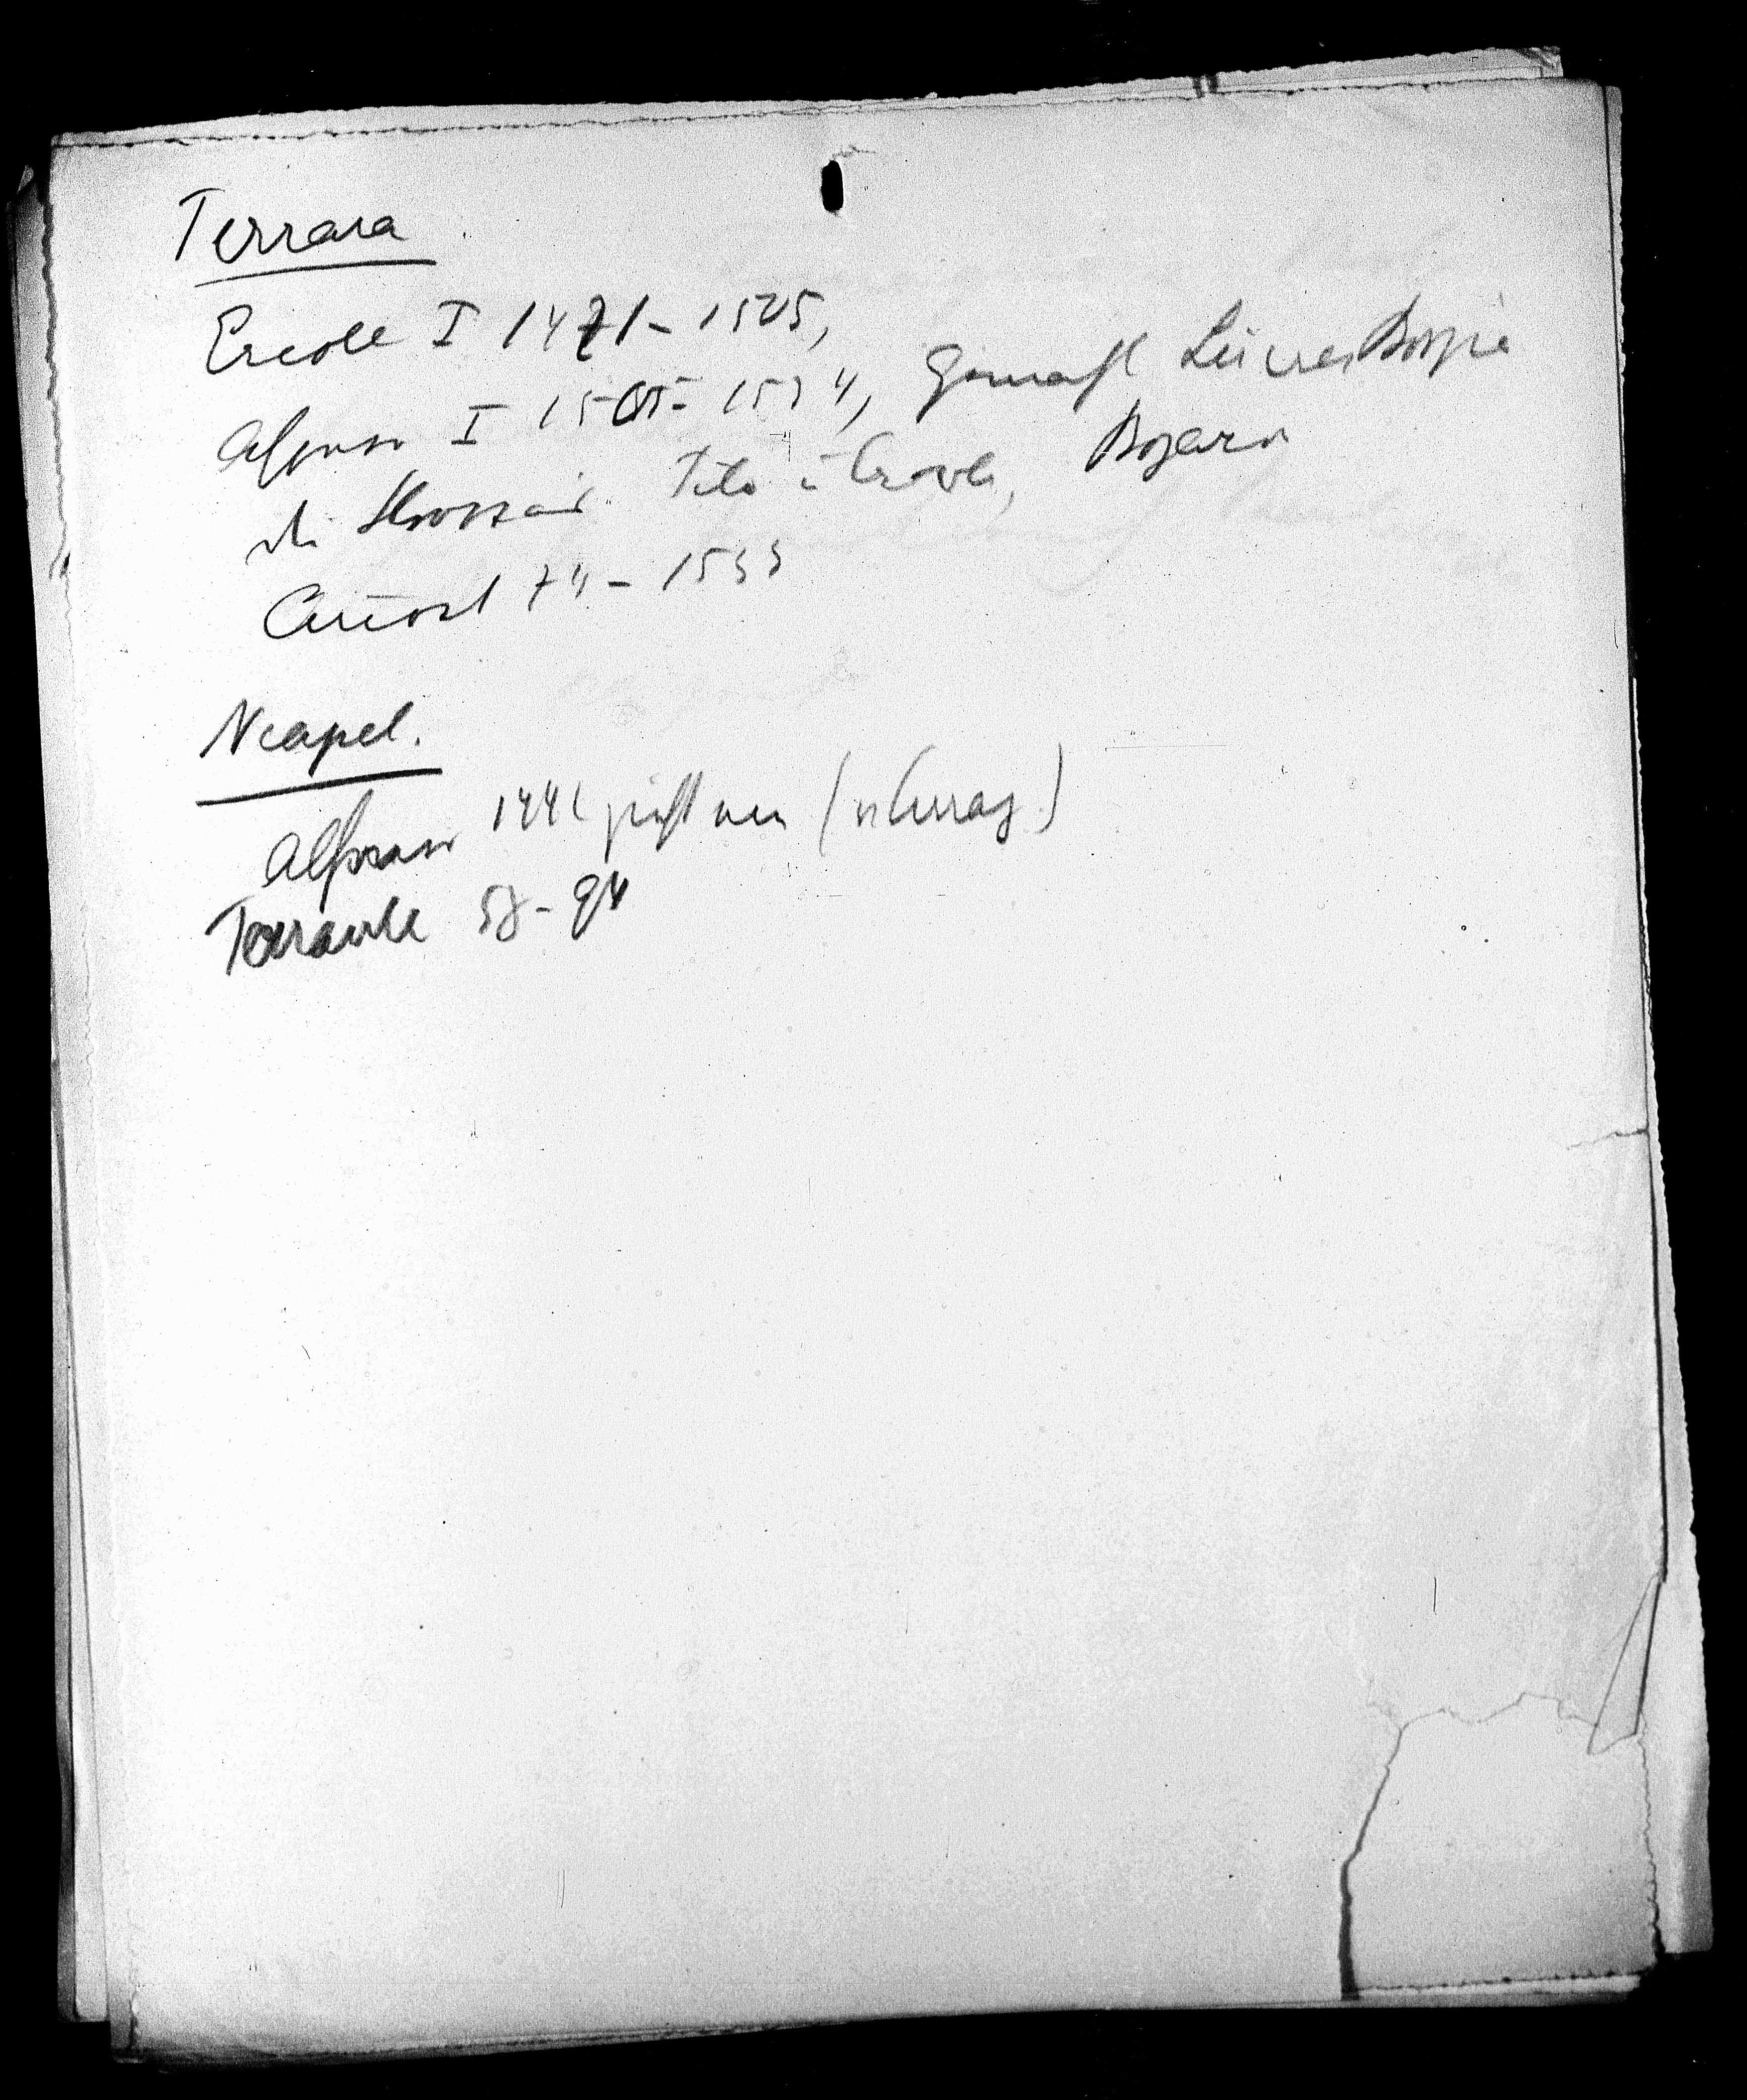 Ferrara
Ercole I 1471-1505,
Alfonso I 1505-1534, Gemahl Lucrez Borgia
die Strozzi Tito u Ercole, Bojardo
Ariost 74-1533
Neapel.
Alfonso 1442 (v Arrag.)
Ferrante 58-94